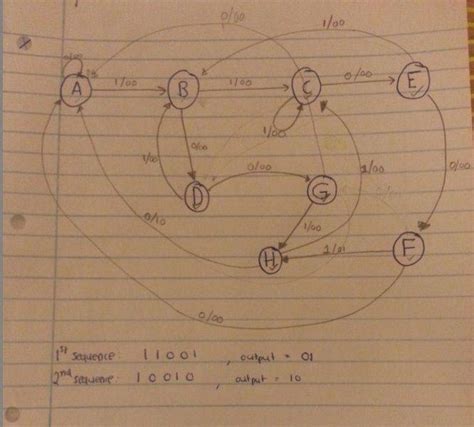 0/00
1/00
0/00
A
1/00
B
1/00
C
0/00
E
1/00
1/00
0/00
0/00
0/00
D
G
1/00
1/00
0/10
H
1/01
F
0/00
1st sequence: 11001, output = 01
2nd sequence: 10010, output = 10